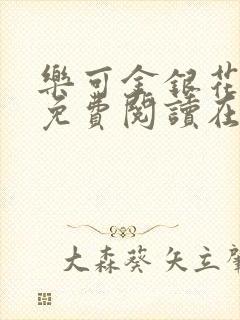 樂可金銀花
免費閱讀在
大森葵 矢立肇